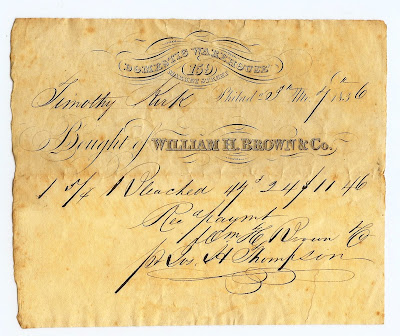 DOMESTIC WAREHOUSE
159
MARKET STREET
Timothy Kirk Philad. 23d 7th 1836
Bought of WILLIAM H. BROWN & Co.
1 5/4 Bleached 47¾ 24 $11 46
Recd paymt
Wm H Brown & Co
pr Jos. A Thompson